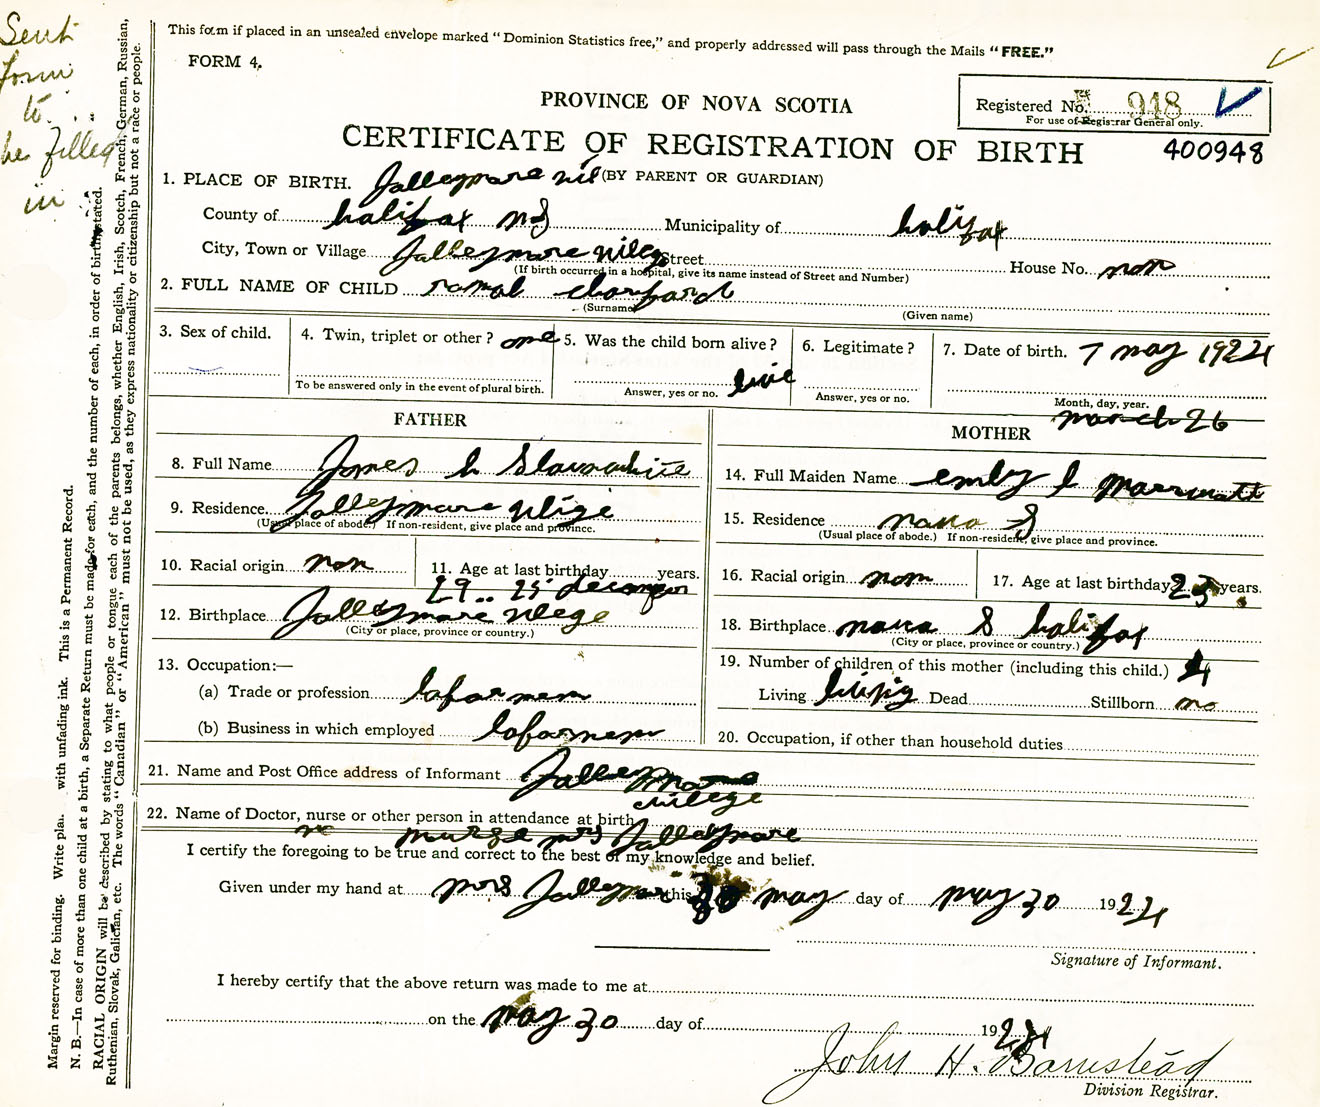 Sent
form
to
be filled
in
This form if placed in an unsealed envelope marked "Dominion Statistics free," and properly addressed will pass through the Mails "FREE."
FORM 4.
PROVINCE OF NOVA SCOTIA
Registered No. 948
For use of Registrar General only.
CERTIFICATE OF REGISTRATION OF BIRTH
400948
1. PLACE OF BIRTH. (BY PARENT OR GUARDIAN)
County of halifax NS Municipality of halifax
City, Town or Village Street House No. non
(If birth occurred in a hospital, give its name instead of Street and Number)
2. FULL NAME OF CHILD
(Surname) (Given name)
3. Sex of child. 4. Twin, triplet or other? one 5. Was the child born alive? 6. Legitimate? 7. Date of birth. 7 may 1924
To be answered only in the event of plural birth. Answer, yes or no. live Answer, yes or no. Month, day, year.
march 26
FATHER
MOTHER
8. Full Name James h
14. Full Maiden Name emly
9. Residence
(Usual place of abode.) If non-resident, give place and province.
15. Residence nova S
(Usual place of abode.) If non-resident, give place and province.
10. Racial origin non 11. Age at last birthday years.
29 25
16. Racial origin non 17. Age at last birthday 23 years.
12. Birthplace
(City or place, province or country.)
18. Birthplace nova S halifax
(City or place, province or country.)
13. Occupation:—
(a) Trade or profession
(b) Business in which employed
19. Number of children of this mother (including this child.) 4
Living living Dead Stillborn no
20. Occupation, if other than household duties
21. Name and Post Office address of Informant
22. Name of Doctor, nurse or other person in attendance at birth
I certify the foregoing to be true and correct to the best of my knowledge and belief.
Given under my hand at mrs this 30 may day of may 30 1924
Signature of Informant.
I hereby certify that the above return was made to me at
on the may 30 day of 1924
John H. Barnstead
Division Registrar.
Margin reserved for binding. Write with unfading ink. This is a Permanent Record.
N. B.—In case of more than one child at a birth, a Separate Return must be made for each, and the number of each, in order of birth, stated.
RACIAL ORIGIN will be described by stating to what people or tongue each of the parents belongs, whether English, Irish, Scotch, French, German, Russian,
Ruthenian, Slovak, Galician, etc. The words "Canadian" or "American" must not be used, as they express nationality or citizenship but not a race or people.